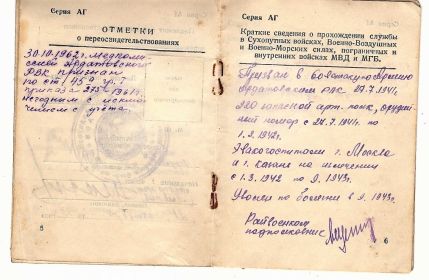 Серия АГ
ОТМЕТКИ
о переосвидетельствованиях
30.10.1962 г. Медкомис-
сией Ардатовского
РВК признан
по ст. 45 гр. I
приказа 275-1961 г.
негодным с исклю-
чением с учета
5
Серия АГ
Краткие сведения о прохождении службы
в Сухопутных войсках, Военно-Воздушных
и Военно-Морских силах, пограничных и
внутренних войсках МВД и МГБ.
Призван в Советскую Армию
Ардатовским РВК 24.7.1941г.
запасной арт. полк, орудий-
ный номер с 24.7.1941г. по
1.3.1942 г.
Эвакогоспиталь г. Москва
и г. Казань на излечении
с 1.3.1942 по 9.1943г.
Уволен по болезни в 9.1943г.
Райвоенком
подполковник
6